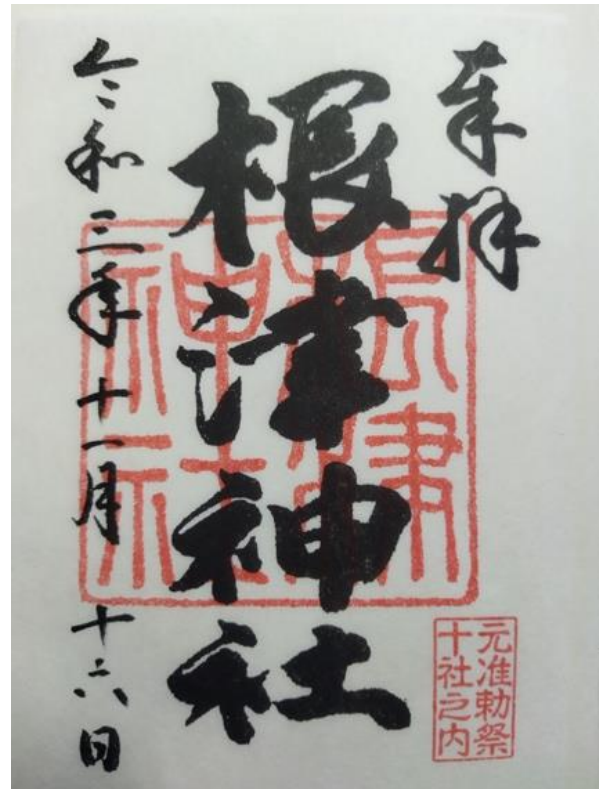 奉拝
根津神社
令和三年十一月十六日
根津神社
元准勅祭
十社之内